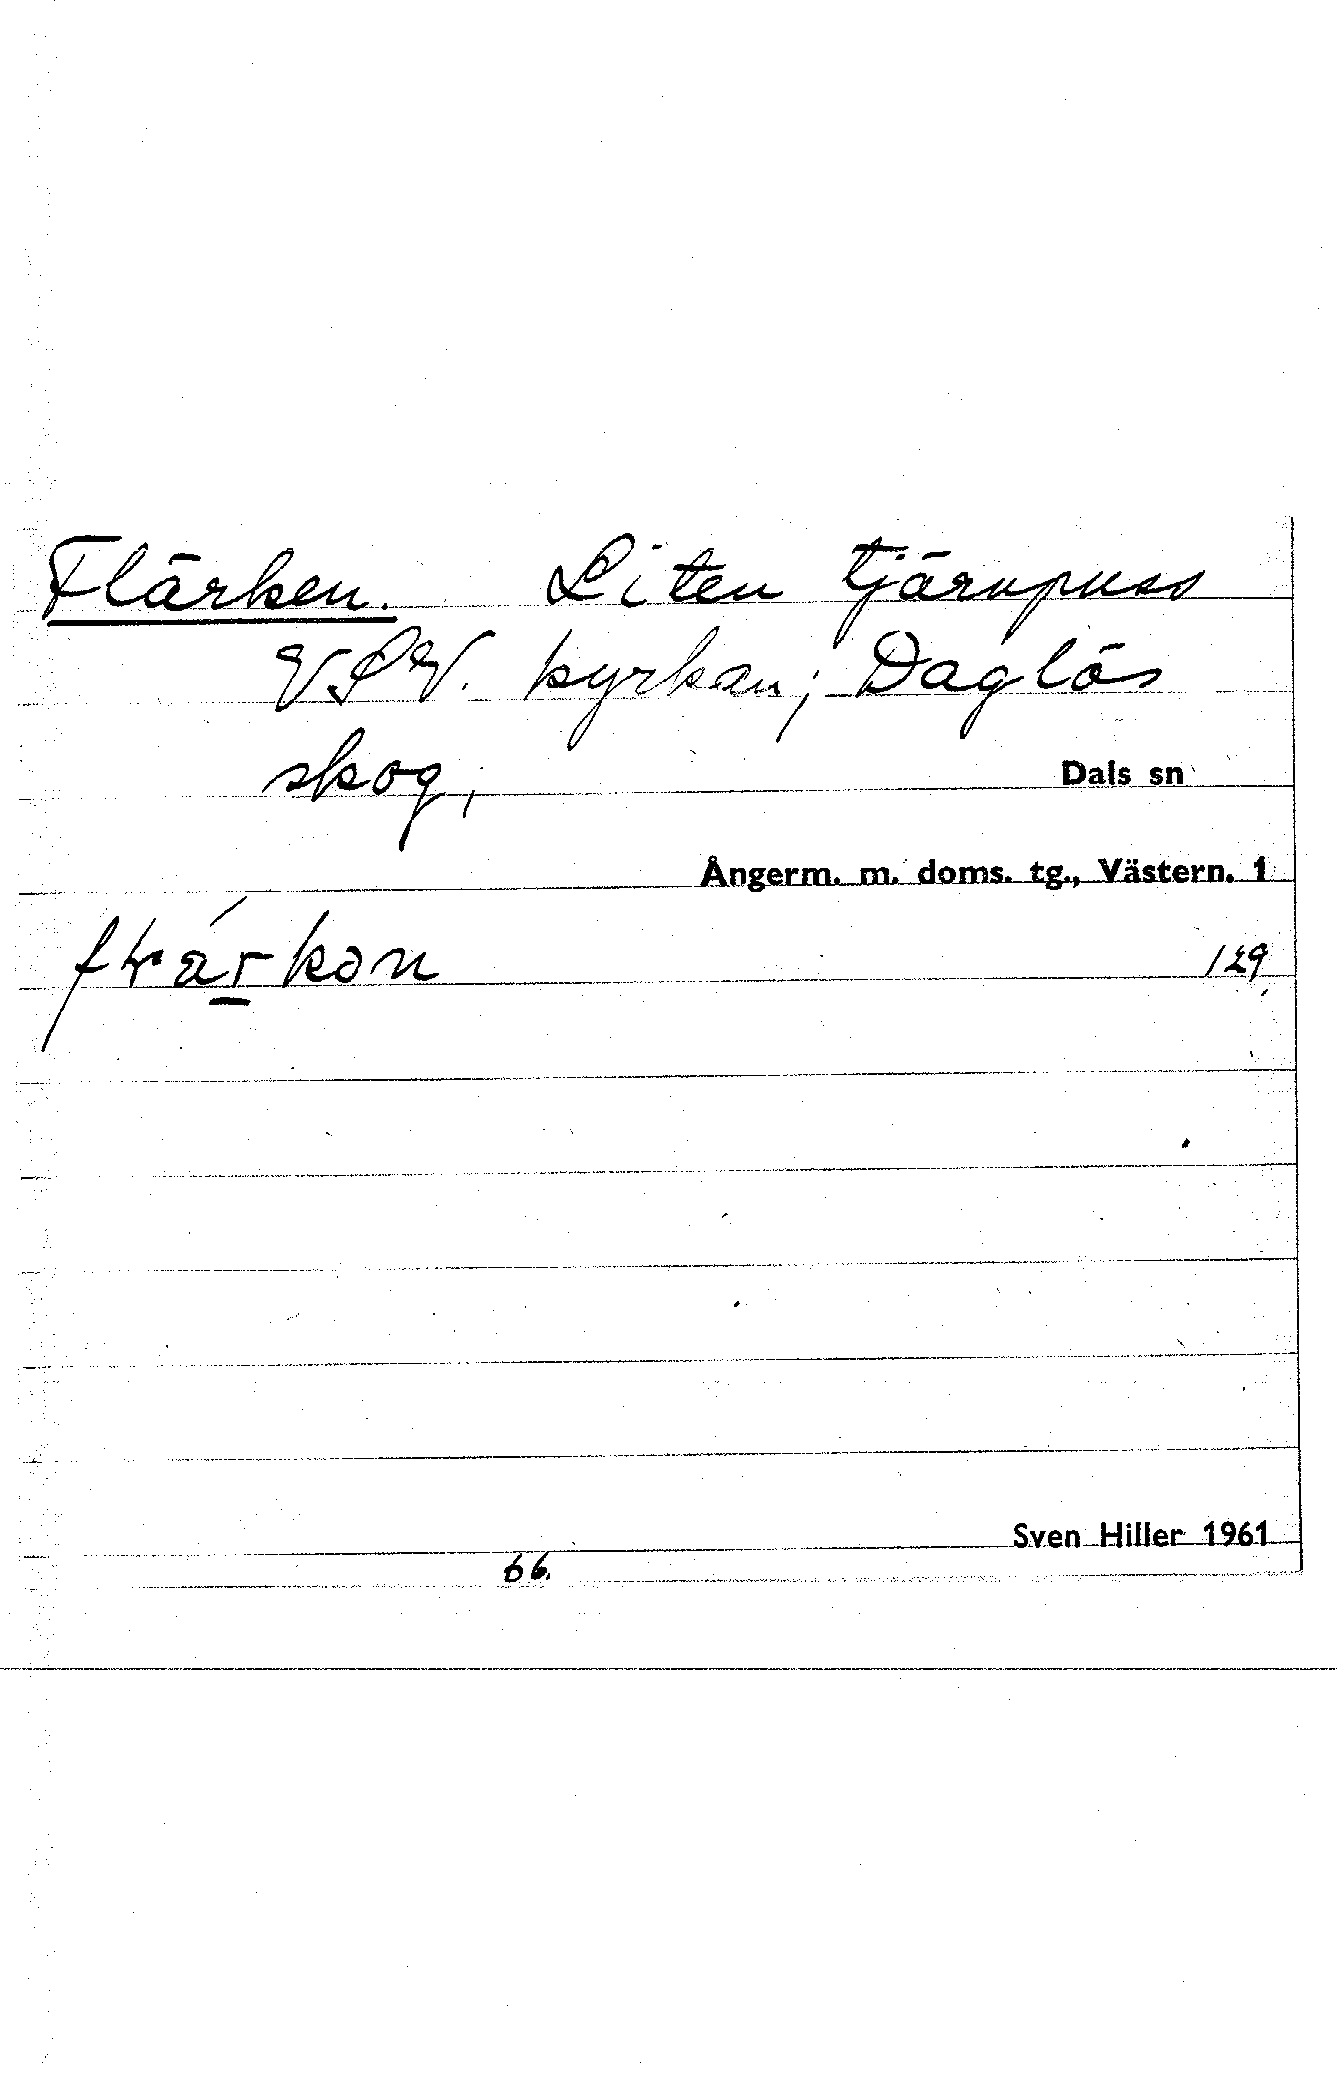 Flärken. Liten tjärnpuss
VSV. kyrkan; Daglös
skog, Dals sn
Ångerm. m. doms. tg., Västern. 1
129
Sven Hiller 1961
66.